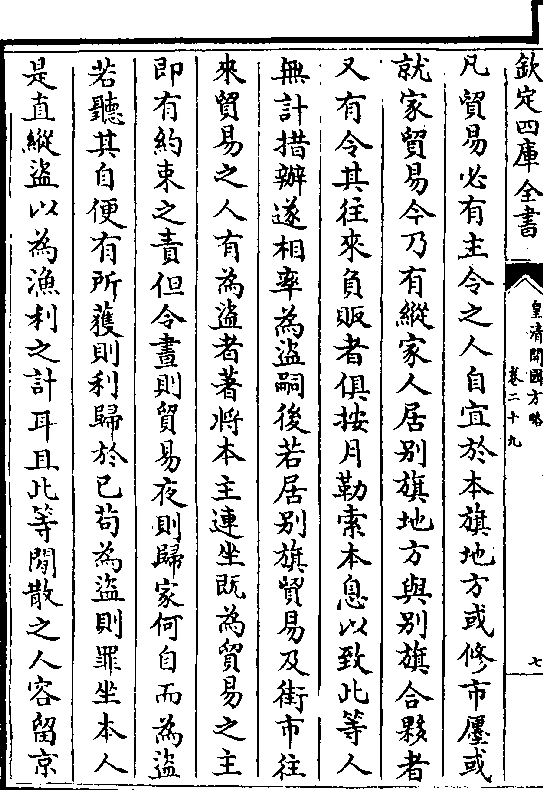 欽定四庫全書
皇清開國方略
卷二十九
七
凡貿易必有主令之人自宜於本旗地方或修市廛或
就家貿易今乃有縱家人居别旗地方與别旗合夥者
又有令其往來負販者俱按月勒索本息以致此等人
無計措辦遂相率為盜嗣後若居别旗貿易及街市往
來貿易之人有為盜者著將本主連坐既為貿易之主
即有約束之責但令晝則貿易夜則歸家何自而為盜
若聽其自便有所獲則利歸於已苟為盜則罪坐本人
是直縱盜以為漁利之計耳且此等閒散之人容留京